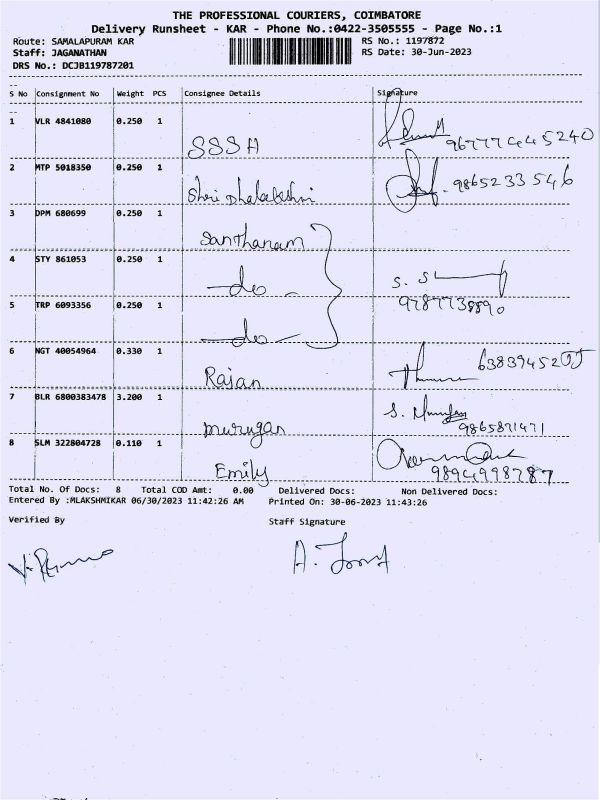 THE PROFESSIONAL COURIERS, COIMBATORE
Delivery Runsheet - KAR - Phone No.:0422-3505555 - Page No.:1
Route: SAMALAPURAM KAR
RS No.: 1197872
Staff: JAGANATHAN
RS Date: 30-Jun-2023
DRS No.: DCJB119787201
S No Consignment No Weight PCS Consignee Details Signature
1 VLR 4841080 0.250 1
SSSA
2 MTP 5018350 0.250 1
9865233546
Shri
3 DPM 680699 0.250 1
Santhanam
4 STY 861053 0.250 1
-do-
5 TRP 6093356 0.250 1
-do-
6 NGT 40054964 0.330 1
Rajan
7 BLR 6800383478 3.200 1
Murugan
8 SLM 322804728 0.110 1
Emily
9894998787
Total No. Of Docs: 8 Total COD Amt: 0.00 Delivered Docs: Non Delivered Docs:
Entered By :MLAKSHMIKAR 06/30/2023 11:42:26 AM Printed On: 30-06-2023 11:43:26
Verified By Staff Signature